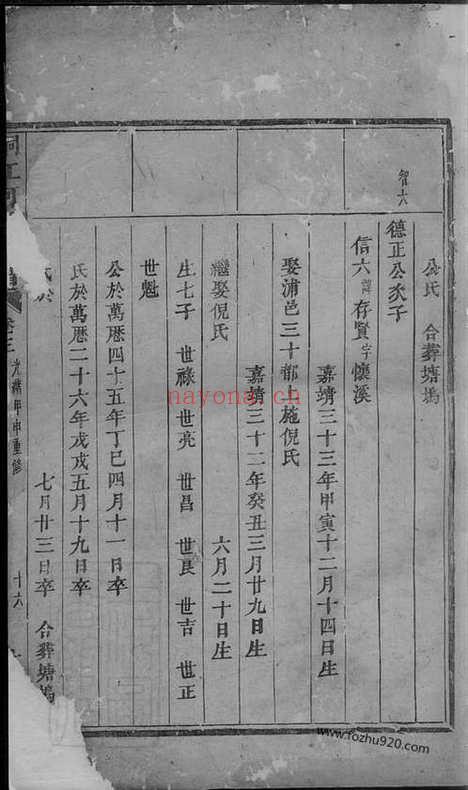 智六
公氏 合葬塘塢
德正公次子
信六 諱存賢字懷溪
嘉靖三十三年甲寅十二月十四日生
娶浦邑三十都上施倪氏
嘉靖三十二年癸丑三月廿九日生
繼娶倪氏
六月二十日生
生七子 世祿 世亮 世昌 世良 世吉 世正
世魁
公於萬曆四十五年丁巳四月十一日卒
氏於萬曆二十六年戊戌五月十九日卒
氏於 七月廿三日卒 合葬塘塢
卷三 光緒甲申重修 十六
nayona.cn
www.fozhu920.com